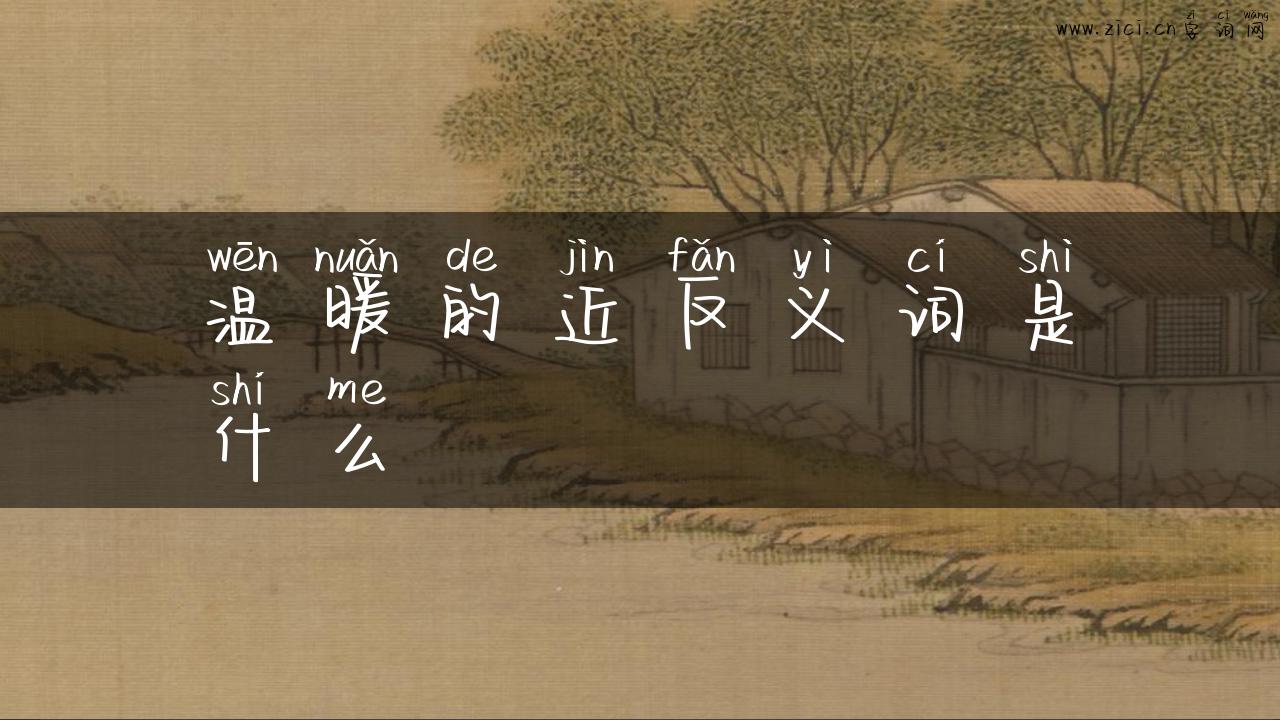 www.zici.cn字词网
zì cí wǎng
wēn nuǎn de jìn fǎn yì cí shì
温暖的近反义词是
shí me
什么